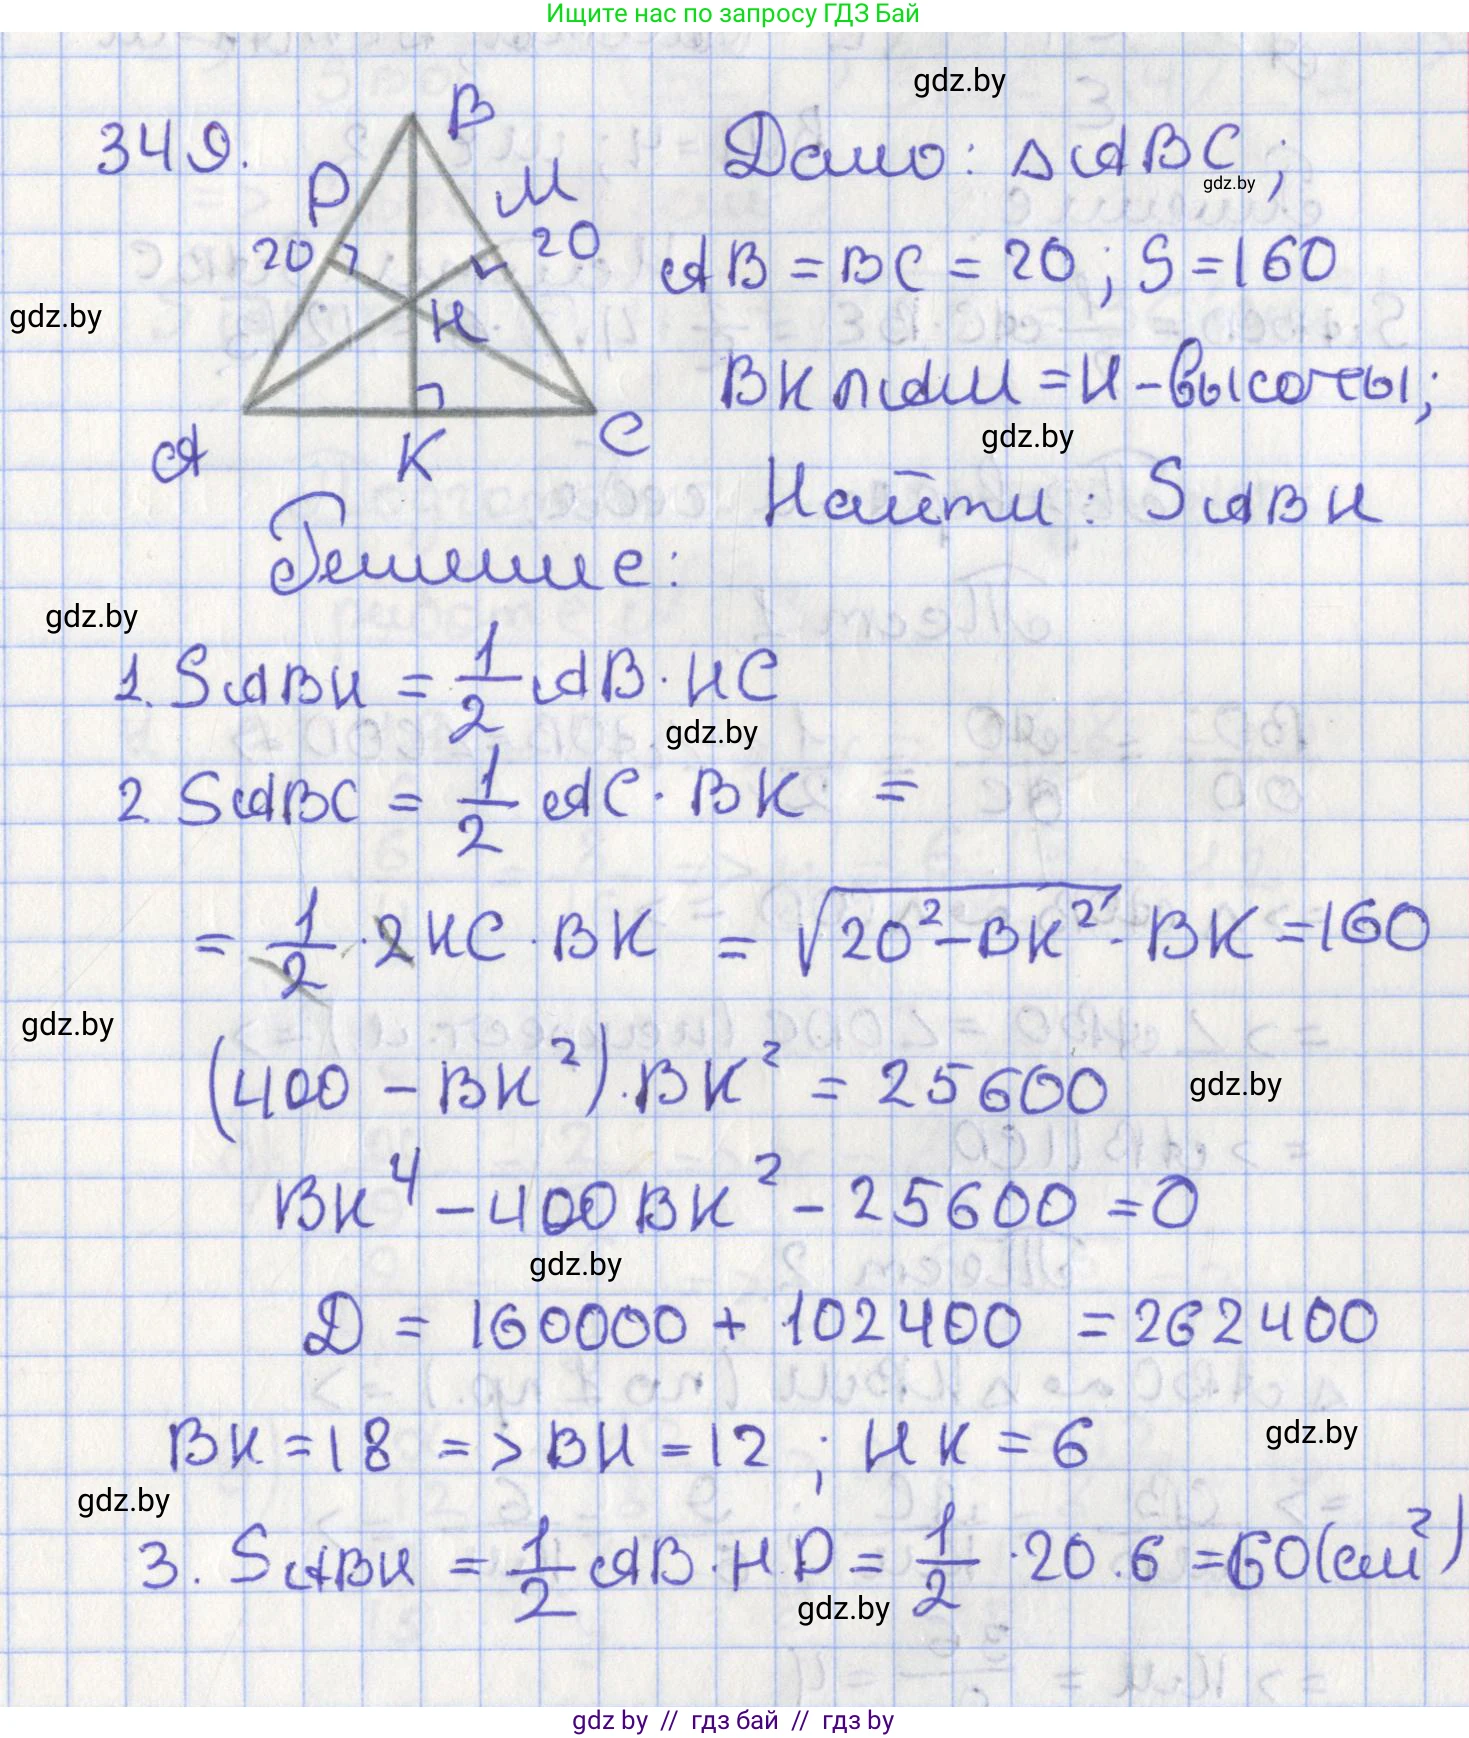 Ищите нас по запросу ГДЗ Бай
gdz.by
349.
B
P
M
20
20
H
A
K
C
Дано: △ABC;
gdz.by
AB = BC = 20; S = 160
gdz.by
BK ∩ AM = H - высоты;
gdz.by
Найти: SABH
Решение:
gdz.by
1. SABH = 1/2 AB · HC
gdz.by
2. SABC = 1/2 AC · BK =
= 1/2 · 2KC · BK = √(20² - BK²) · BK = 160
gdz.by
(400 - BK²) · BK² = 25600
gdz.by
BK⁴ - 400BK² - 25600 = 0
gdz.by
Д = 160000 + 102400 = 262400
BK = 18 => BH = 12 ; HK = 6
gdz.by
gdz.by
3. SABH = 1/2 AB · HP = 1/2 · 20 · 6 = 60 (см²)
gdz.by
gdz by // гдз бай // гдз by